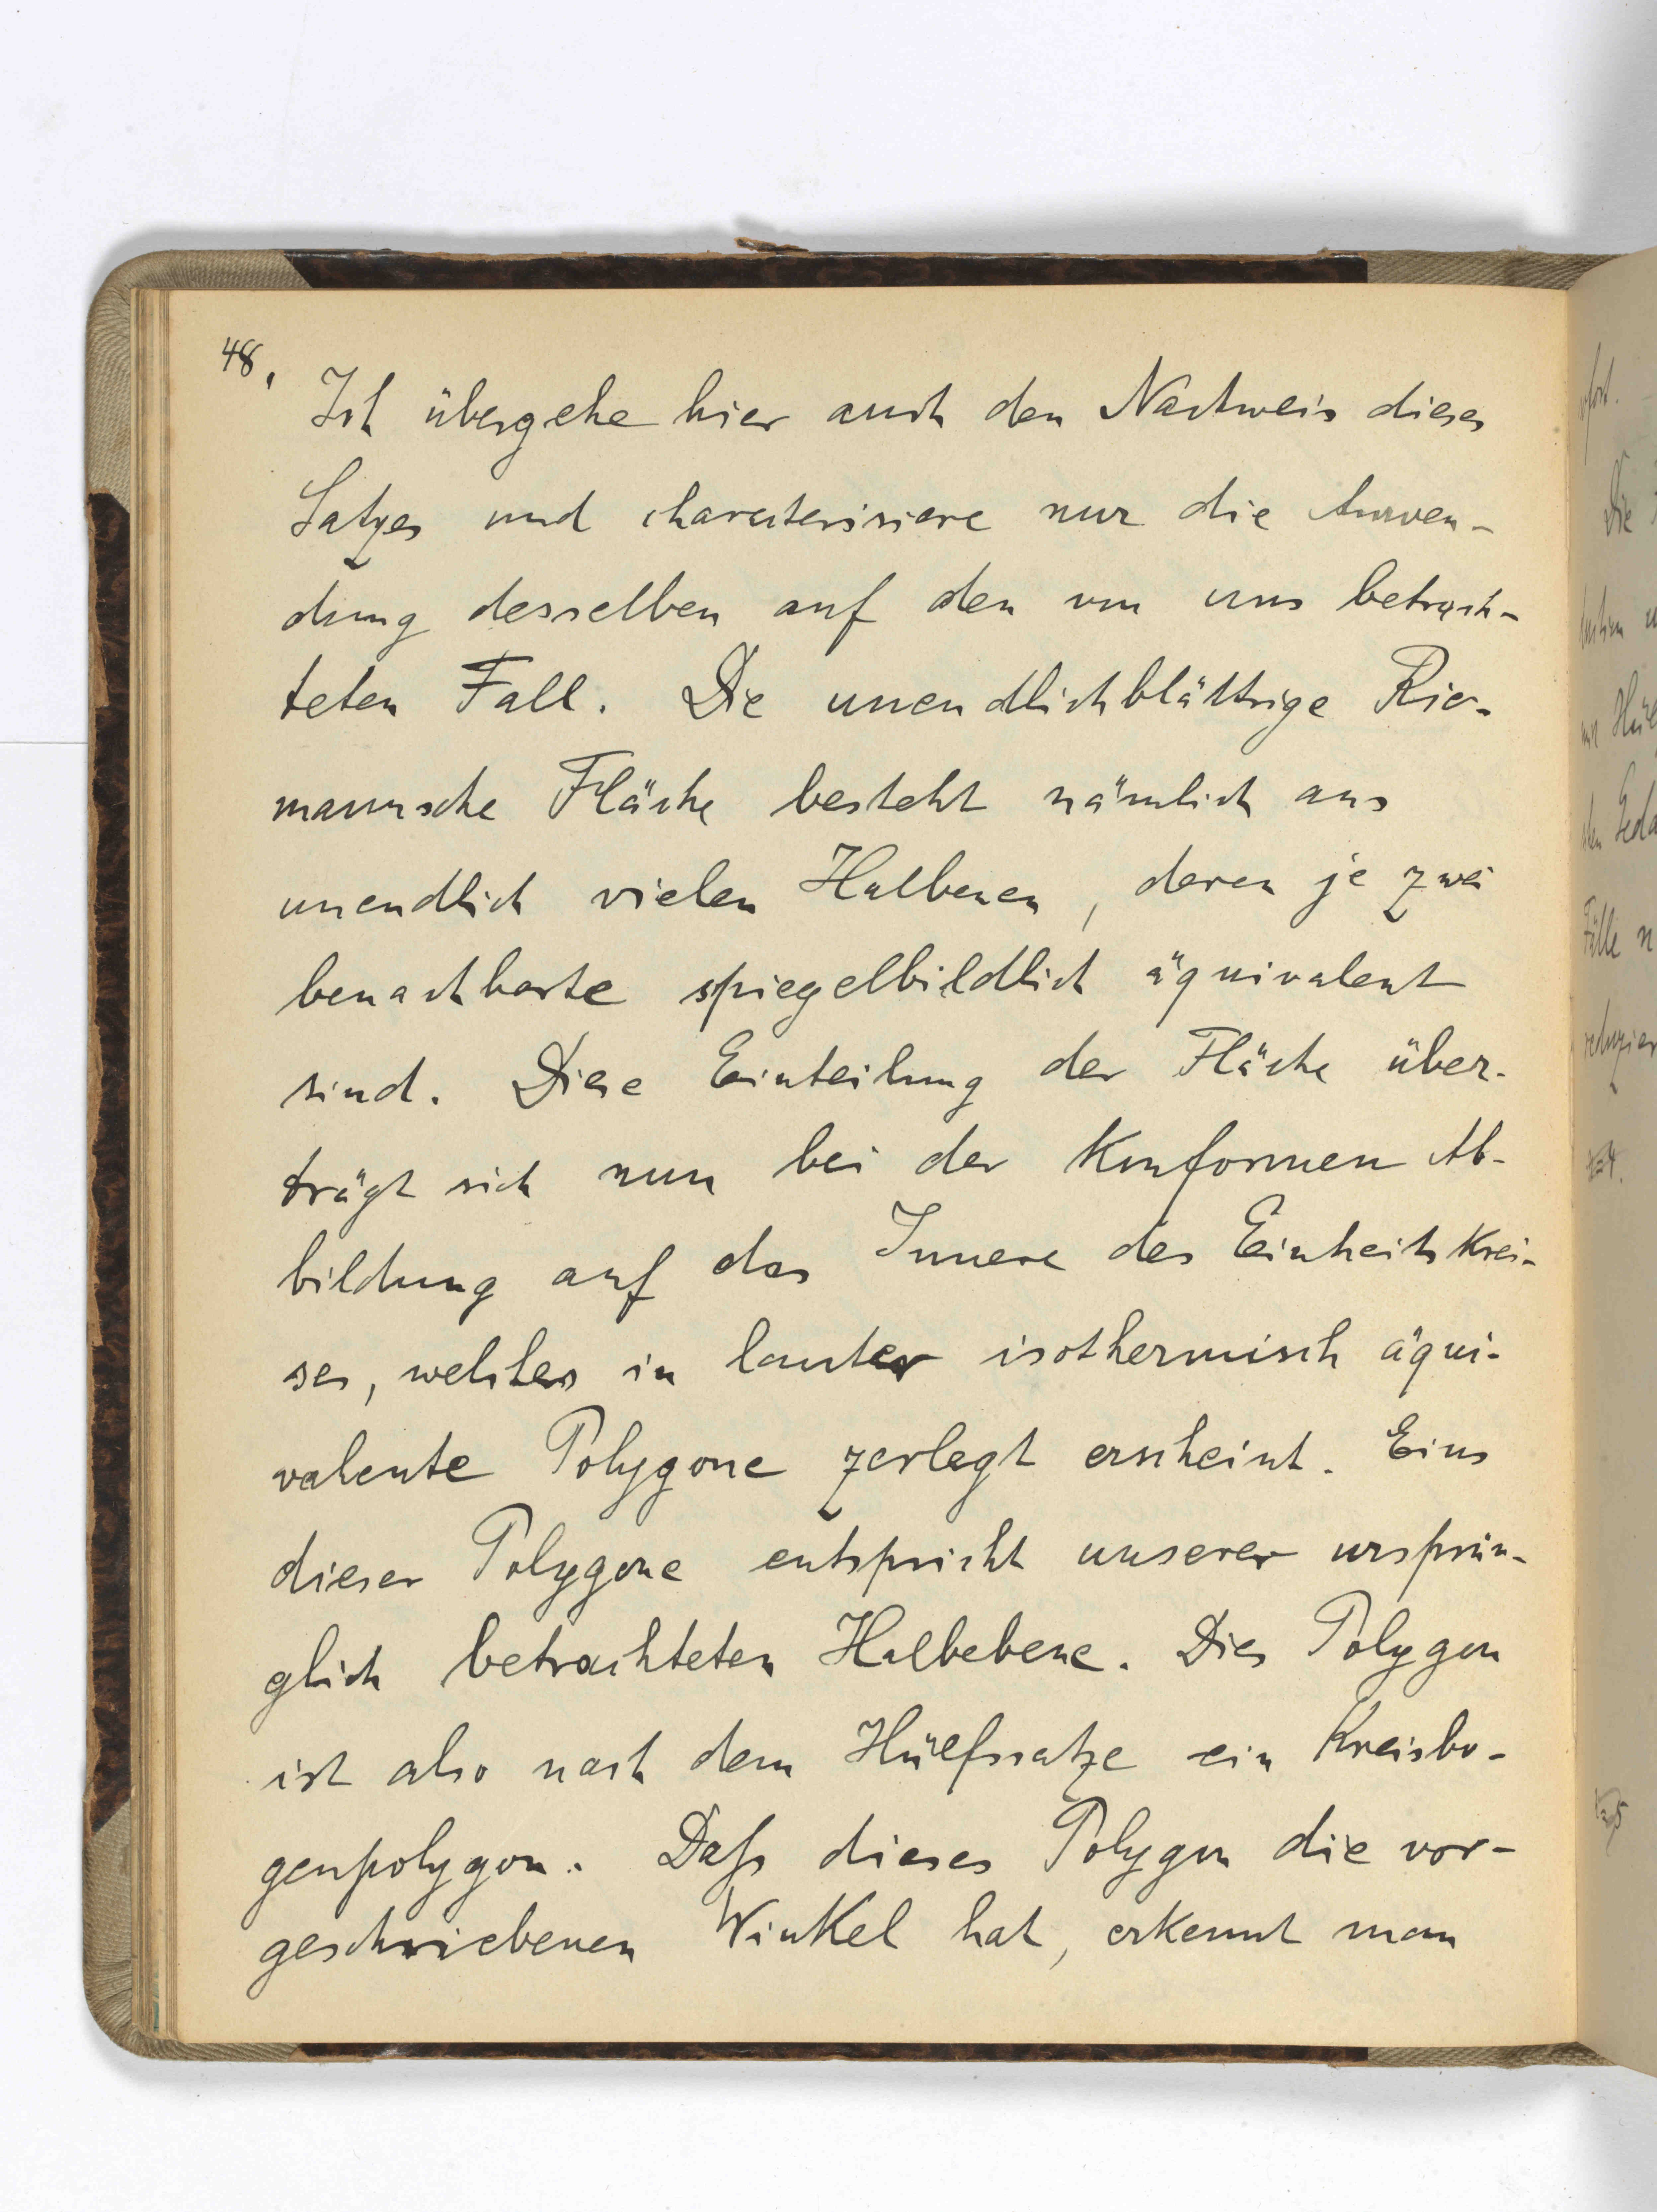 48.
Ich übergehe hier auch den Nachweis dieses
Satzes und characterisiere nur die Anwen-
dung desselben auf den von uns betrach-
teten Fall. Die unendlichblättrige Rie-
mannsche Fläche besteht nämlich aus
unendlich vielen Halbenen, deren je zwei
benachbarte spiegelbildlich äquivalent
sind. Diese Einteilung der Fläche über-
trägt sich nun bei der Konformen Ab-
bildung auf das Innere des Einheitskrei-
ses, welches in lauter isothermisch äqui-
valente Polygone zerlegt erscheint. Eins
dieser Polygone entspricht unserer ursprün-
glich betrachteten Halbebene. Dies Polygon
ist also nach dem Hülfssatze ein Kreisbo-
genpolygon. Daß dieses Polygon die vor-
geschriebenen Winkel hat, erkennt man
Die
Fälle